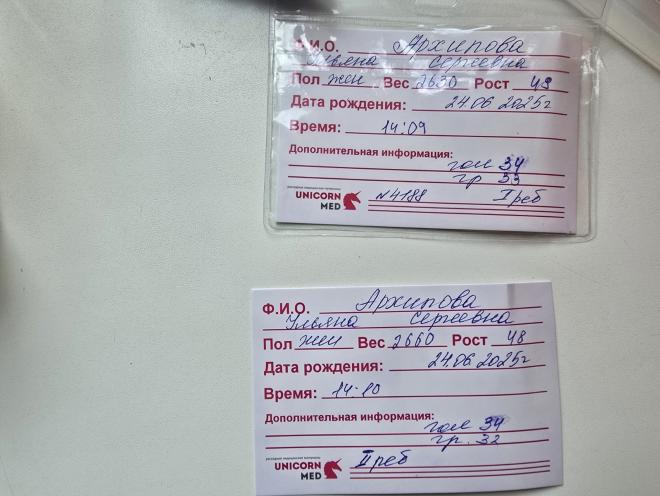 Ф.И.О. Архипова
Ульяна Сергеевна
Пол жен Вес 2630 Рост 48
Дата рождения: 24.06 2025г
Время: 14:09
Дополнительная информация:
гол 34
гр 33
UNICORN MED №4188 I реб
Ф.И.О. Архипова
Ульяна Сергеевна
Пол жен Вес 2660 Рост 48
Дата рождения: 24.06 2025г
Время: 14:10
Дополнительная информация:
гол 34
гр. 32
UNICORN MED II реб